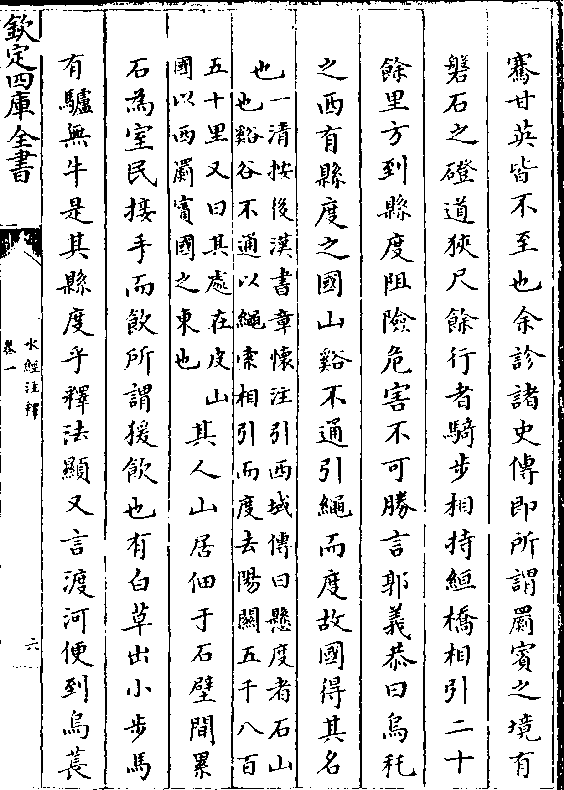 騫甘英皆不至也余診諸史傳即所謂罽賓之境有
磐石之磴道狹尺餘行者騎步相持絙橋相引二十
餘里方到縣度阻險危害不可勝言郭義恭曰烏秅
之西有縣度之國山谿不通引繩而度故國得其名
也
一清按後漢書章懷注引西域傳曰懸度者石山
也谿谷不通以繩索相引而度去陽關五千八百
五十里又曰其處在皮山
國以西罽賓國之東也
其人山居佃于石壁間累
石為室民接手而飲所謂猨飲也有白草出小步馬
有驢無牛是其縣度乎釋法顯又言渡河便到烏萇
欽定四庫全書
水經注釋
卷一
六